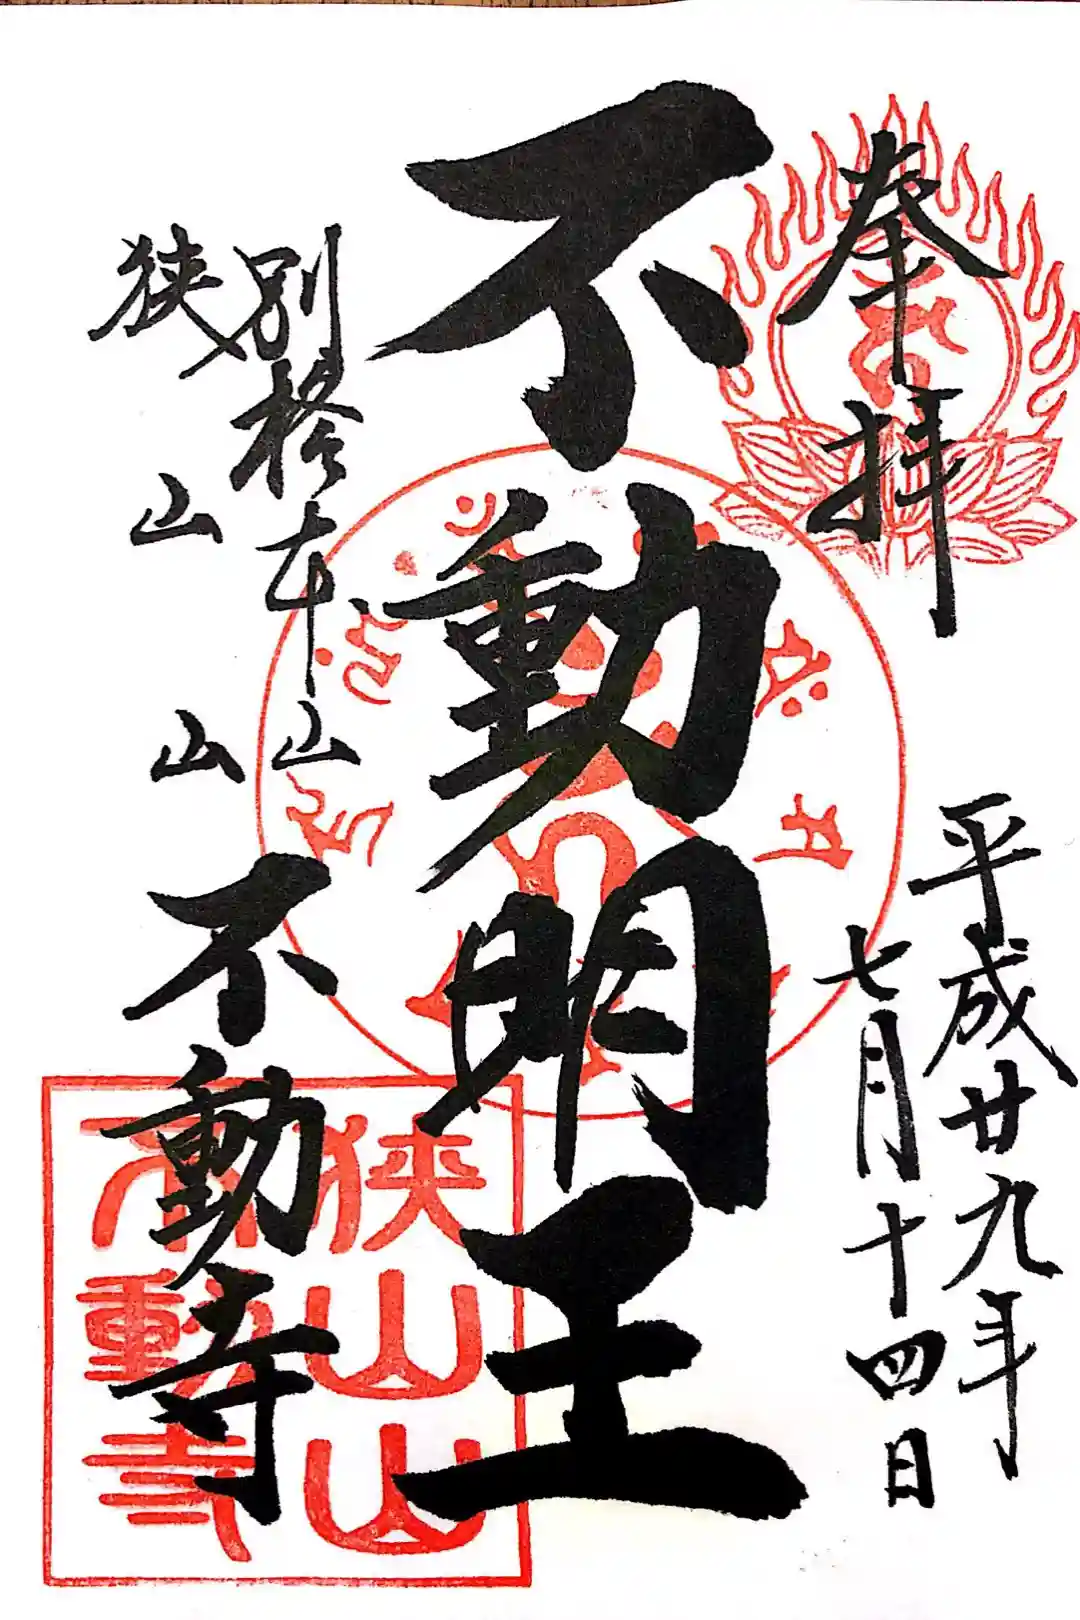 奉拝
平成廿九年
七月十四日
不動明王
別格本山
狭山山不動寺
狭山山
不動寺